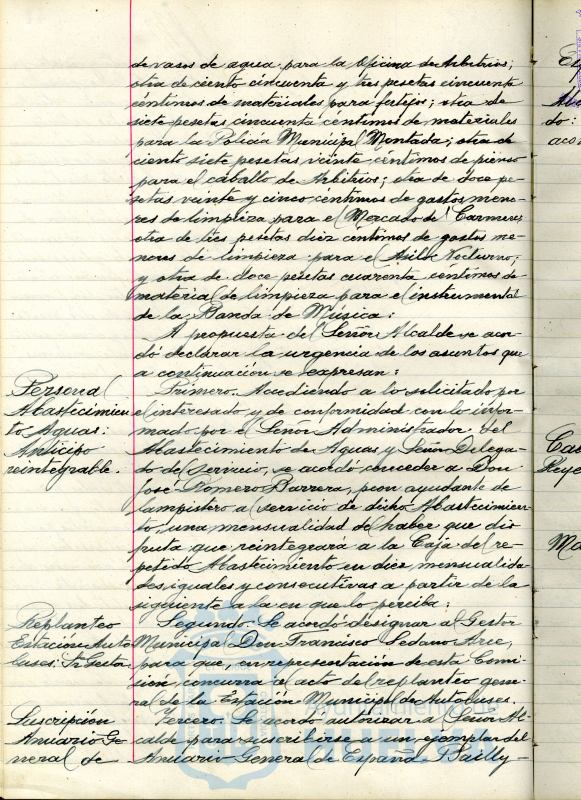 de vasos de agua para la Oficina de Arbitrios;
otra de ciento cincuenta y tres pesetas cincuenta
céntimos de materiales para festejos; otra de
siete pesetas cincuenta céntimos de materiales
para la Policía Municipal Montada; otra de
ciento siete pesetas veinte céntimos de pienso
para el caballo de Arbitrios; otra de doce pe-
setas veinte y cinco céntimos de gastos meno-
res de limpieza para el Mercado del Carmen;
otra de tres pesetas diez céntimos de gastos me-
nores de limpieza para el Asilo Nocturno;
y otra de doce pesetas cuarenta céntimos de
material de limpieza para el instrumental
de la Banda de Música:
A propuesta del Señor Alcalde se acor-
dó declarar la urgencia de los asuntos que
a continuación se expresan:
Personal
Abastecimien-
to Aguas:
Anticipo
reintegrable.
Primero. Accediendo a lo solicitado por
el interesado y de conformidad con lo infor-
mado por el Señor Administrador del
Abastecimiento de Aguas y Señor Delega-
do del servicio, se acordó conceder a Don
José Romero Barrera, peon ayudante de
lampistero al servicio de dicho Abastecimien-
to, una mensualidad del haber que dis-
fruta que reintegrará a la Caja del re-
petido Abastecimiento en diez mensualida-
des iguales y consecutivas a partir de la
siguiente a la en que lo perciba:
Replanteo
Estación Auto
buses: Sr Gestor
Segundo. Se acordó designar al Gestor
Municipal Don Francisco Sedano Arce,
para que, en representación de esta Comi-
sión concurra al acto del replanteo gene-
ral de la Estación Municipal de Autobuses.
Suscripción
Anuario Ge-
neral de
Tercero. Se acordó autorizar al Señor Al-
calde para suscribirse a un ejemplar del
Anuario General de España Bailly-
do: